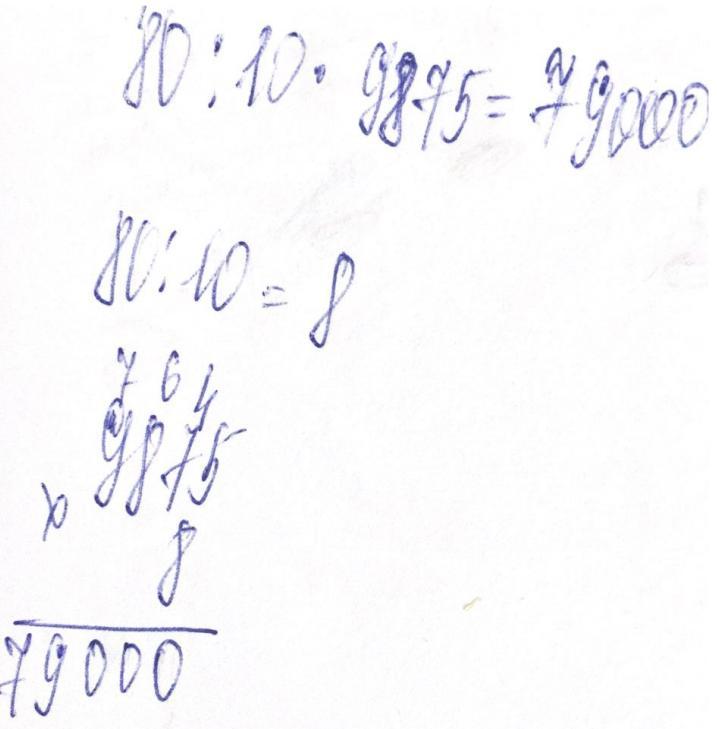 80:10·9875=79000
80:10=8
7 6 4
9875
×
8
79000